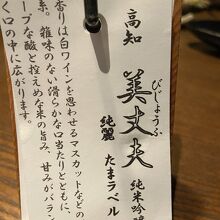 高知
美丈夫
びじょうふ
純米吟
純麗
たまラベル
香りは白ワインを思わせるマスカットなどの
系。雑味のない滑らかな口当たりとともに、
ープな酸と控えめな米の旨み、甘みがバラン
く口の中に広がります。